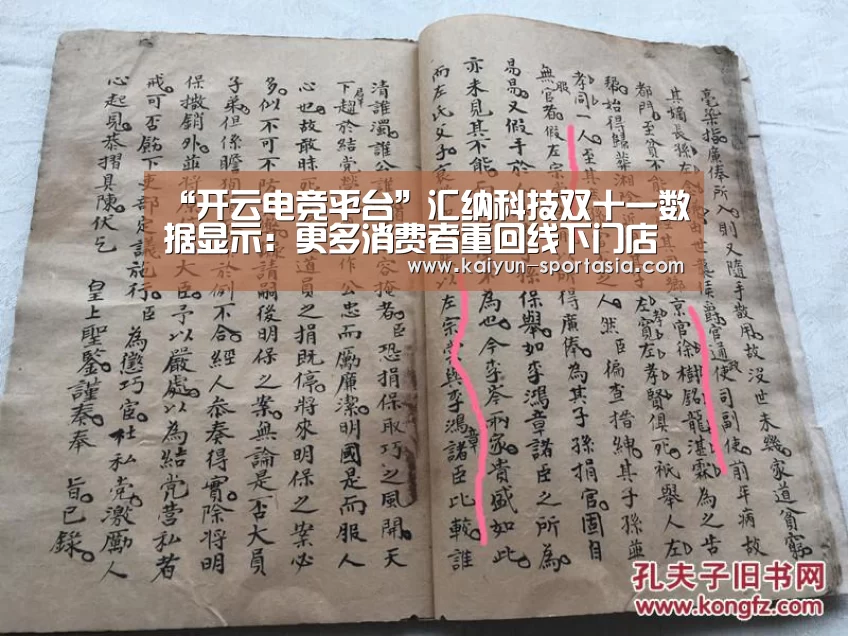 “开云电竞平台”汇纳科技双十一数
据显示：更多消费者重回线下门店
www.kaiyun-sportasia.com
毫染指廣俸所入則又隨手散用故没世未幾家道貧窮
其嫡長孫左由世襲侯爵官通政使司副使前年病故
都門至貧不能其鄉京官徐樹銘龍湛霖為之告
幫始得歸葬湘陰子左寬左孝賢俱死祇舉人左
孝同一人至其之人然臣偏查搢紳其子孫並
無服官者假左宗所得廣俸為其子孫捐官固自
易易又假手於保舉如李鴻章諸臣之所為
亦未見其不能為也今李岑兩家貴盛如此
而左氏父子衰以左宗棠與李鴻章諸臣比較誰
清誰濁誰公誰容掩者臣恐捐保取巧之風開天
下羣趨於結党作公忠而勵廉潔明國是而服人
心也故敢昧死道員之捐既停將來明保之案必
多似不可不防請嗣後明保之案無論是否大員
子弟但係瞻於例不合經人叅奏得實除將明
保撤銷外並將大臣予以嚴處以為結党營私者
戒可否飭下吏部定議施行臣為懲巧宦杜私党激勵人
心起見恭摺具陳伏乞 皇上聖鑒謹奏奉 旨已錄
孔夫子旧书网
www.kongfz.com